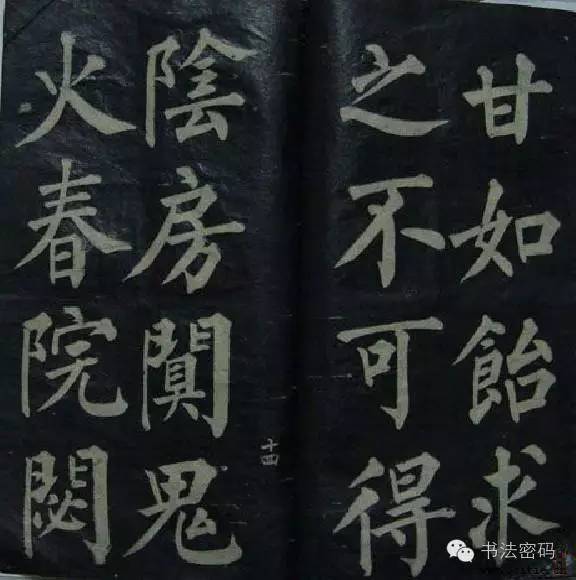 甘如飴求
之不可得
陰房闃鬼
火春院閟
十四
书法密码